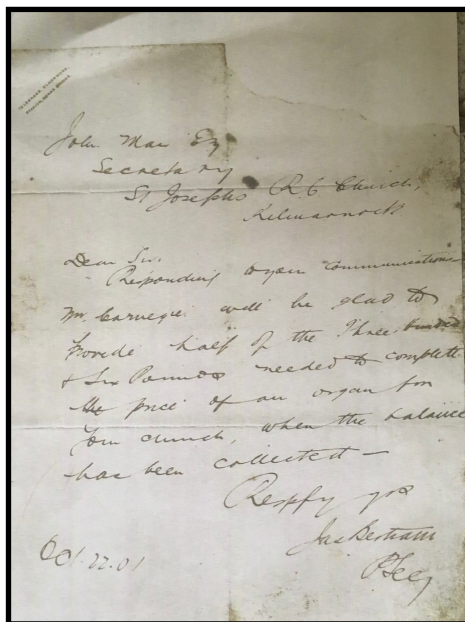 John Mar Esq
Secretary
St Josephs R C Church,
Kilmarnock
Dear Sir,
Responding to your communication
Mr. Carnegie will be glad to
provide half of the Three hundred
& Six Pounds needed to complete
the price of an organ for
your church, when the balance
has been collected —
Respfy yrs
Jas Bertram
P Secy
Oct. 22. 01